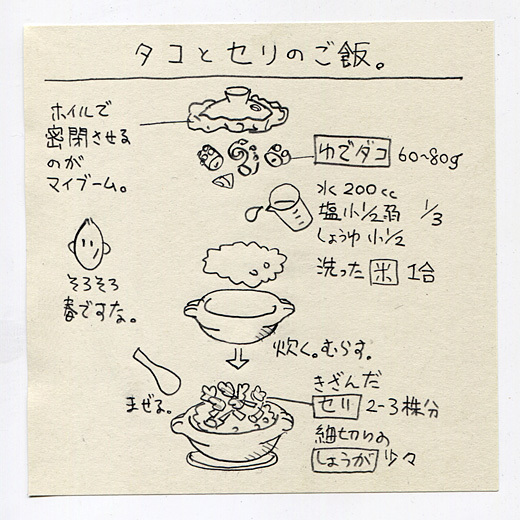 タコとセリのご飯。
ホイルで
密閉させる
のが
マイブーム。
ゆでダコ 60~80g
水200cc
塩小1/2弱 1/3
しょうゆ小1/2
洗った米1合
そろそろ
春ですな。
炊く。むらす。
まぜる。
きざんだ
セリ 2-3株分
細切りの
しょうが少々